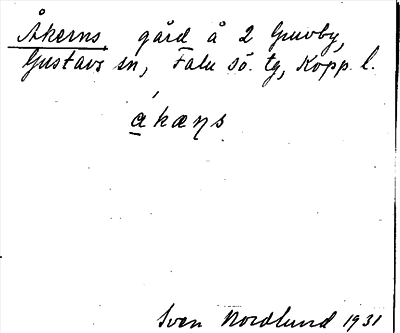 Åkerns gård å 2 Gruvby,
Gustavs sn, Falu sö. tg, Kopp. l.
a̲kæɳs
Sven Nordlund 1931